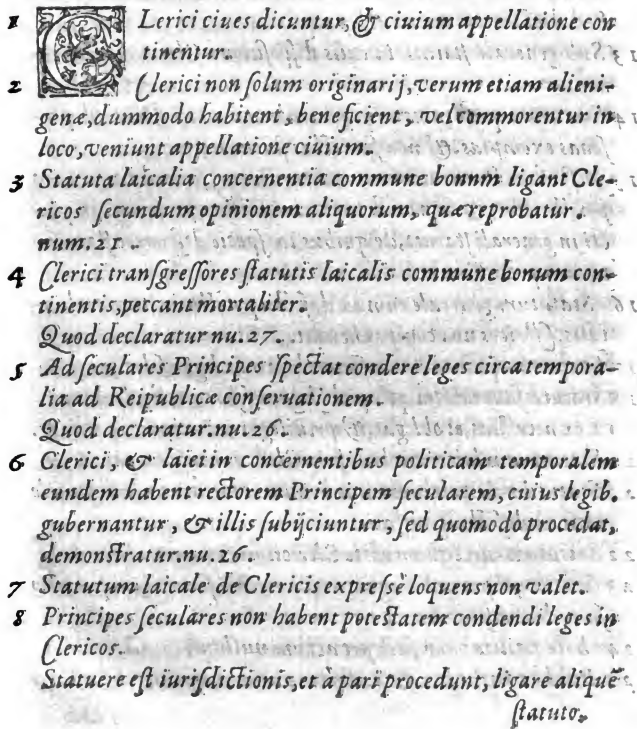 1 CLerici ciues dicuntur, & ciuium appellatione con
tinentur.
2 Clerici non ſolum originarij, verum etiam alieni-
genæ, dummodo habitent, beneficient, vel commorentur in
loco, veniunt appellatione ciuium.
3 Statuta laicalia concernentia commune bonnm ligant Cle-
ricos ſecundum opinionem aliquorum, quæ reprobatur.
num. 21.
4 Clerici tranſgreſſores ſtatutis laicalis commune bonum con-
tinentis, peccant mortaliter.
Quod declaratur nu. 27.
5 Ad ſeculares Principes ſpectat condere leges circa tempora-
lia ad Reipublicæ conſeruationem.
Quod declaratur. nu. 26.
6 Clerici, & laici in concernentibus politicam temporalem
eundem habent rectorem Principem ſecularem, cuius legib.
gubernantur, & illis ſubijciuntur, ſed quomodo procedat,
demonſtratur. nu. 26.
7 Statutum laicale de Clericis expreſsè loquens non valet.
8 Principes ſeculares non habent poteſtatem condendi leges in
Clericos.
Statuere eſt iuriſdictionis, et à pari procedunt, ligare aliquē
ſtatuto.